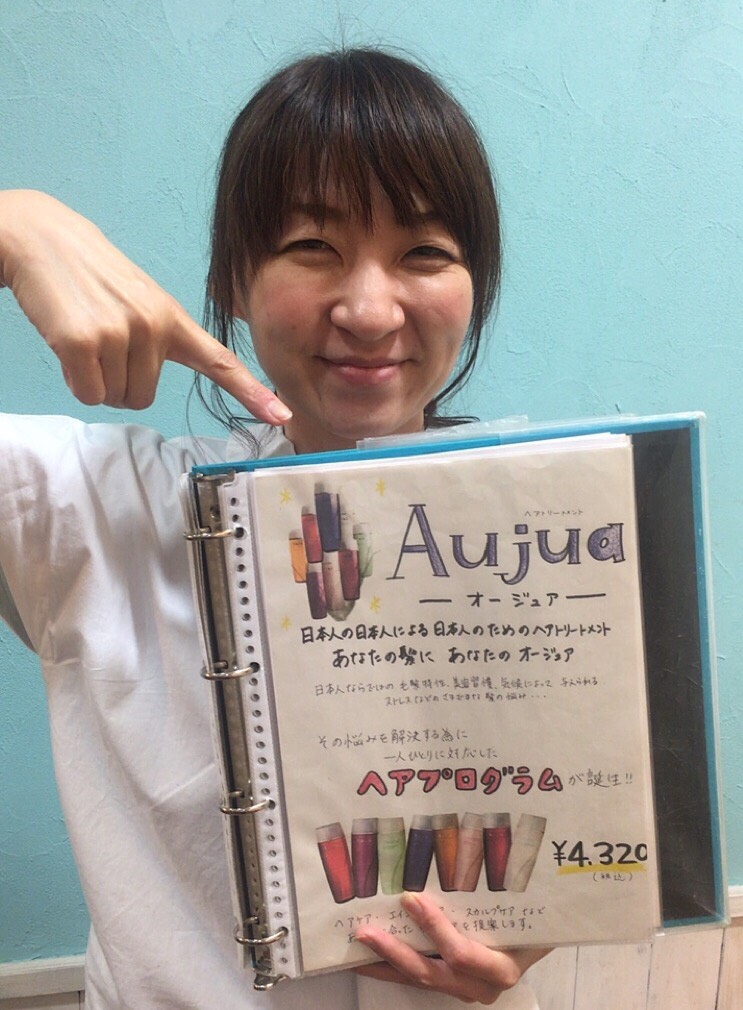 ヘアトリートメント
Aujua
オージュア
日本人の日本人による日本人のためのヘアトリートメント
あなたの髪に あなたの オージュア
日本人ならではの 毛髪特性、美容習慣、気候によって 与えられる
ストレスなどの さまざまな 髪の悩み・・・
その悩みを解決する為に
一人ひとりに対応した
ヘアプログラムが誕生!!
¥4.320
(税込)
ヘアケア・エイ ・スカルプケア など
を提案します。